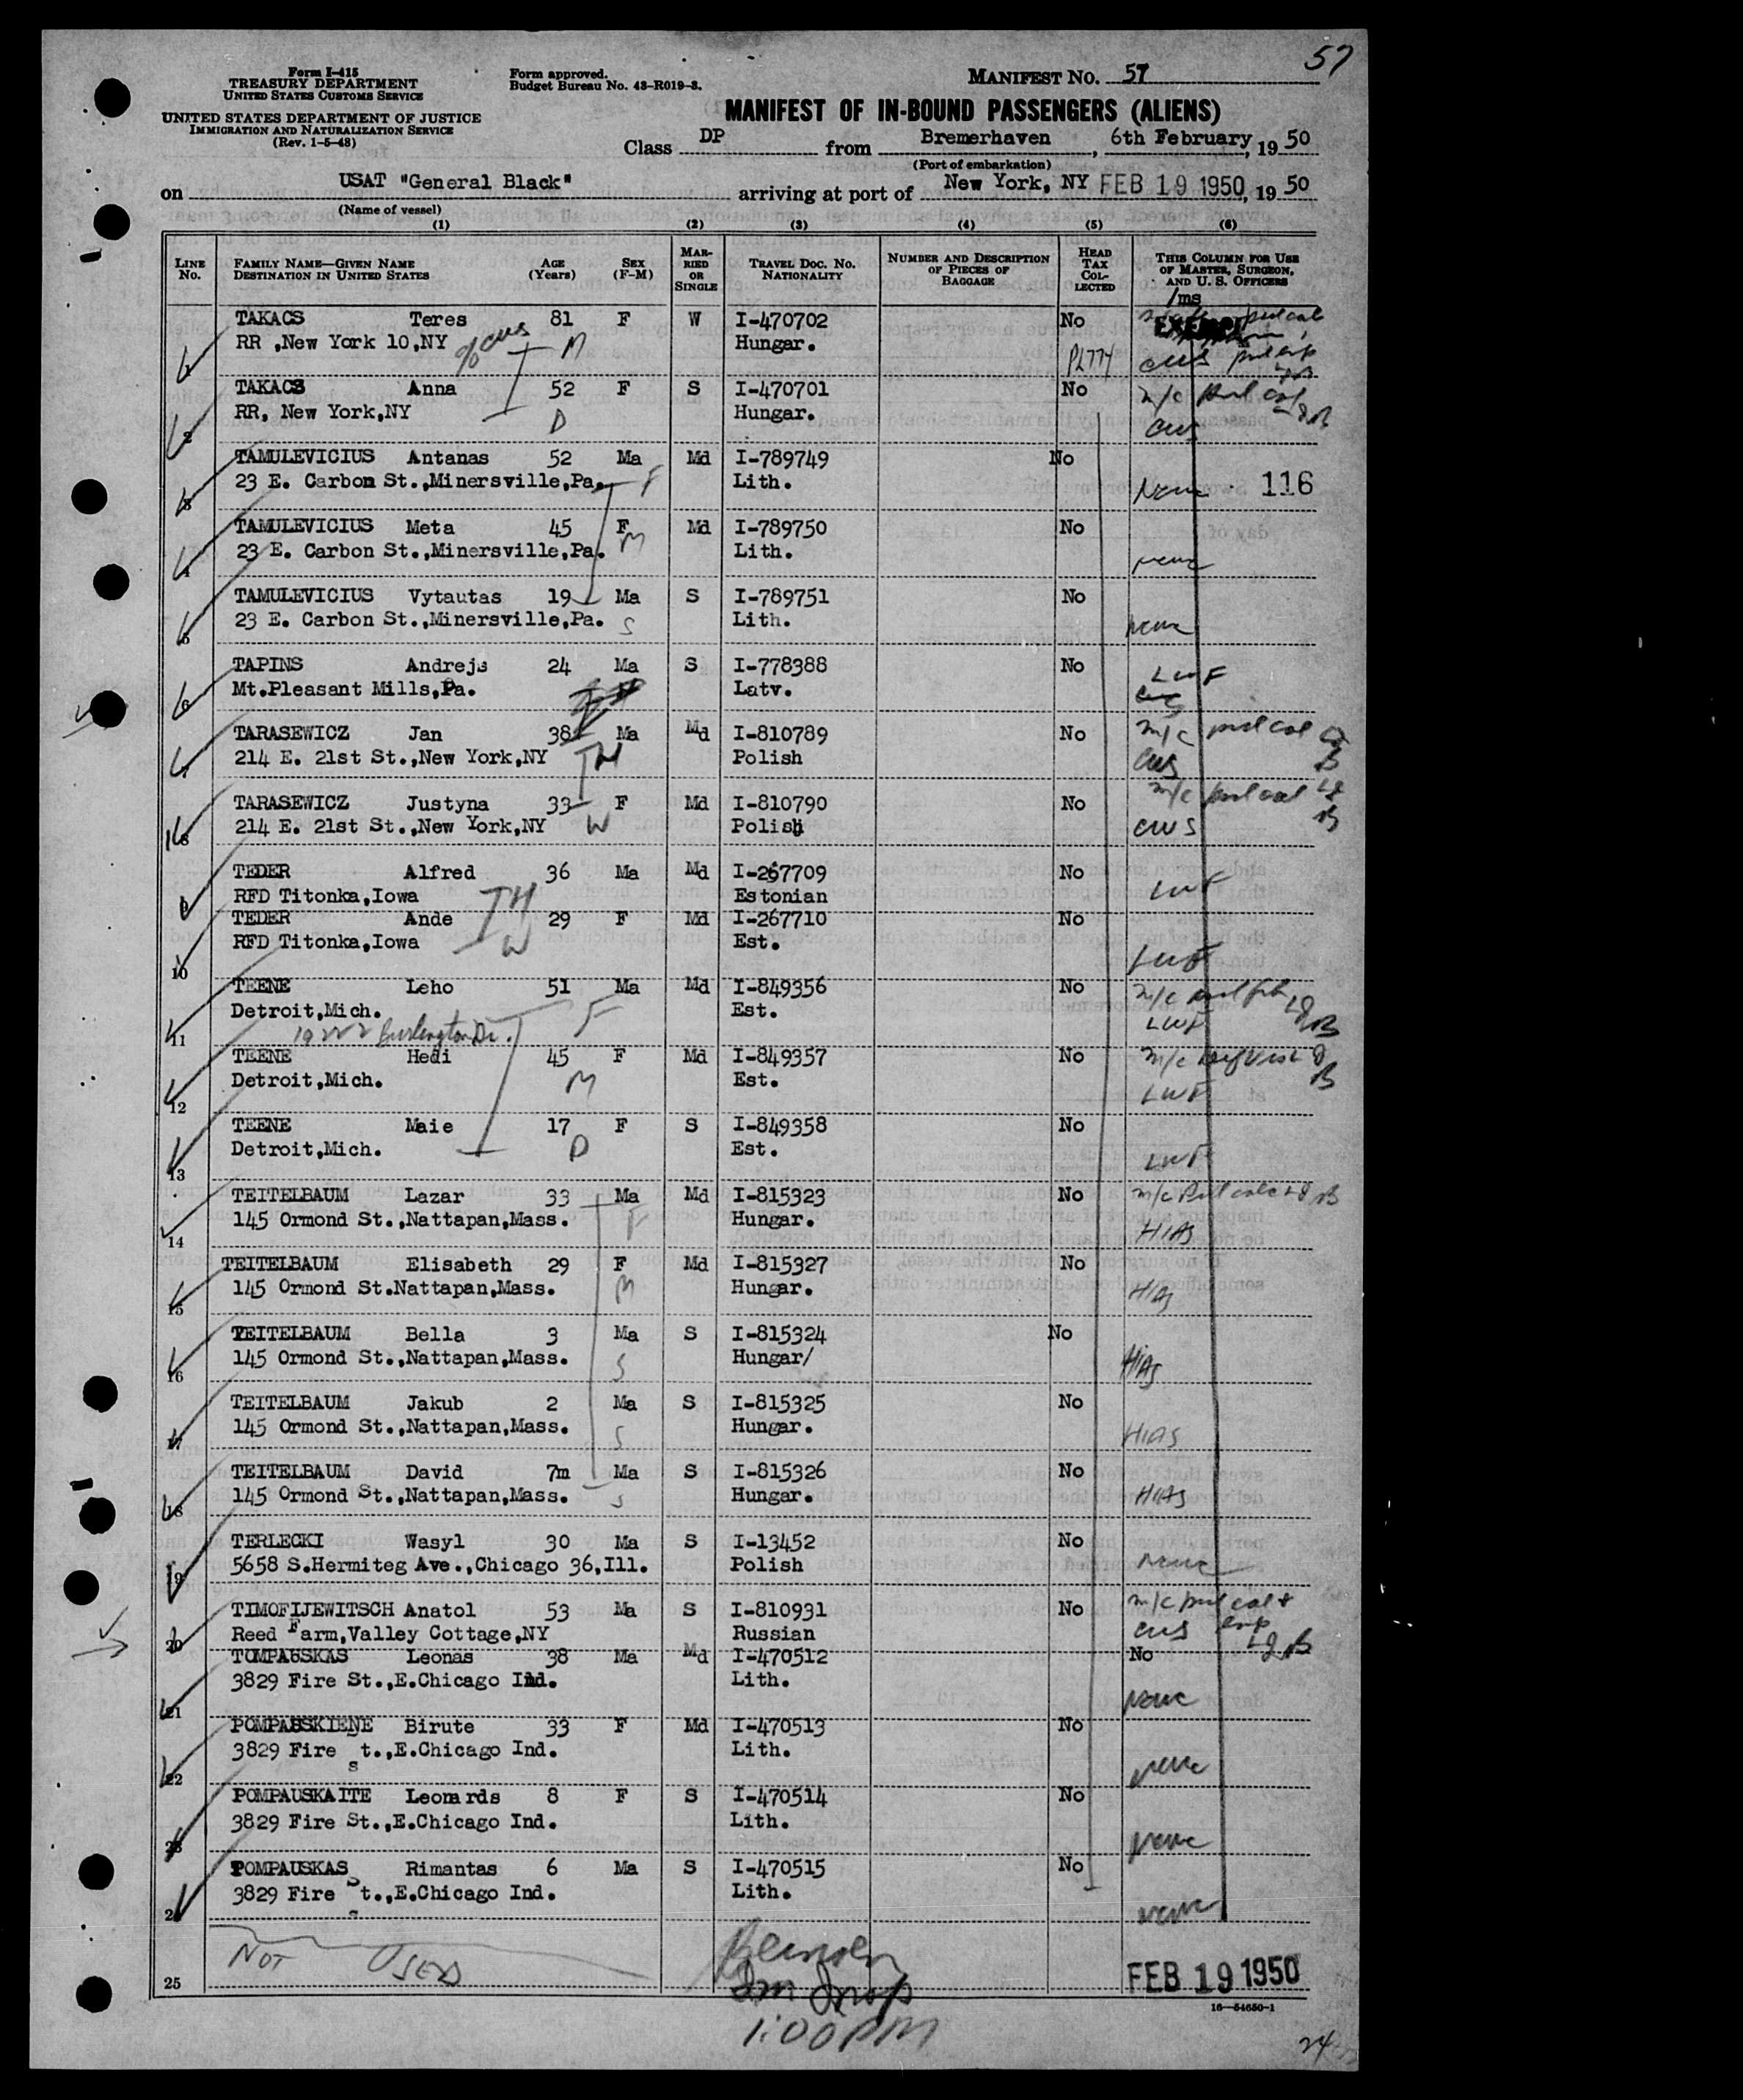 57
Form I-415
TREASURY DEPARTMENT
UNITED STATES CUSTOMS SERVICE
UNITED STATES DEPARTMENT OF JUSTICE
IMMIGRATION AND NATURALIZATION SERVICE
(Rev. 1-5-48)
Form approved.
Budget Bureau No. 43-R019-3.
MANIFEST NO. 57
MANIFEST OF IN-BOUND PASSENGERS (ALIENS)
Class DP from Bremerhaven, 6th February, 19 50
(Port of embarkation)
on USAT "General Black" arriving at port of New York, NY FEB 19 1950, 19 50
(Name of vessel)
(1) (2) (3) (4) (5) (6)
LINE No. FAMILY NAME—GIVEN NAME DESTINATION IN UNITED STATES AGE (Years) SEX (F-M) MARRIED OR SINGLE TRAVEL DOC. NO. NATIONALITY NUMBER AND DESCRIPTION OF PIECES OF BAGGAGE HEAD TAX COLLECTED THIS COLUMN FOR USE OF MASTER, SURGEON, AND U. S. OFFICERS
/ms
TAKACS Teres 81 F W I-470702 No
RR ,New York 10,NY % cws M Hungar. PL774 cws
TAKACS Anna 52 F S I-470701 No m/c pul cal
2 RR, New York,NY D Hungar. cws LgB
TAMULEVICIUS Antanas 52 Ma Md I-789749 No
3 23 E. Carbon St.,Minersville,Pa. F Lith. None 116
TAMULEVICIUS Meta 45 F Md I-789750 No
4 23 E. Carbon St.,Minersville,Pa. M Lith. None
TAMULEVICIUS Vytautas 19 Ma S I-789751 No
5 23 E. Carbon St.,Minersville,Pa. S Lith. None
TAPINS Andrejs 24 Ma S I-778388 No LWF
6 Mt.Pleasant Mills,Pa. Latv.
TARASEWICZ Jan 38 Ma Md I-810789 No m/c pul cal
7 214 E. 21st St.,New York,NY H Polish cws B
TARASEWICZ Justyna 33 F Md I-810790 No m/c pul cal Lg
8 214 E. 21st St.,New York,NY W Polish cws B
TEDER Alfred 36 Ma Md I-267709 No LWF
9 RFD Titonka,Iowa H Estonian
TEDER Ande 29 F Md I-267710 No
10 RFD Titonka,Iowa W Est. LWF
TEENE Leho 51 Ma Md I-849356 No m/c pul fib LgB
Detroit,Mich. F Est. LWF
11 19222 Burlington Dr.
TEENE Hedi 45 F Md I-849357 No m/c def vis Lg B
12 Detroit,Mich. M Est. LWF
TEENE Maie 17 F S I-849358 No
13 Detroit,Mich. D Est. LWF
TEITELBAUM Lazar 33 Ma Md I-815323 No m/c Pul calc Lg B
14 145 Ormond St.,Nattapan,Mass. F Hungar. HIAS
TEITELBAUM Elisabeth 29 F Md I-815327 No
15 145 Ormond St.Nattapan,Mass. M Hungar. HIAS
TEITELBAUM Bella 3 Ma S I-815324 No
16 145 Ormond St.,Nattapan,Mass. S Hungar/ HIAS
TEITELBAUM Jakub 2 Ma S I-815325 No
17 145 Ormond St.,Nattapan,Mass. S Hungar. HIAS
TEITELBAUM David 7m Ma S I-815326 No
18 145 Ormond St.,Nattapan,Mass. S Hungar. HIAS
TERLECKI Wasyl 30 Ma S I-13452 No
19 5658 S.Hermiteg Ave.,Chicago 36,Ill. Polish None
TIMOFIJEWITSCH Anatol 53 Ma S I-810931 No m/c pul cal +
20 Reed Farm,Valley Cottage,NY Russian cws emp Lg B
TOMPAUSKAS Leonas 38 Ma Md I-470512 No
21 3829 Fire St.,E.Chicago Ind. Lith. None
POMPAUSKIENE Birute 33 F Md I-470513 No
22 3829 Fire st.,E.Chicago Ind. Lith. None
POMPAUSKAITE Leonards 8 F S I-470514 No
23 3829 Fire St.,E.Chicago Ind. Lith. None
POMPAUSKAS Rimantas 6 Ma S I-470515 No
24 3829 Fire St.,E.Chicago Ind. Lith. None
NOT USED
25 FEB 19 1950
Im Insp
16—54650-1
1:00 PM
24